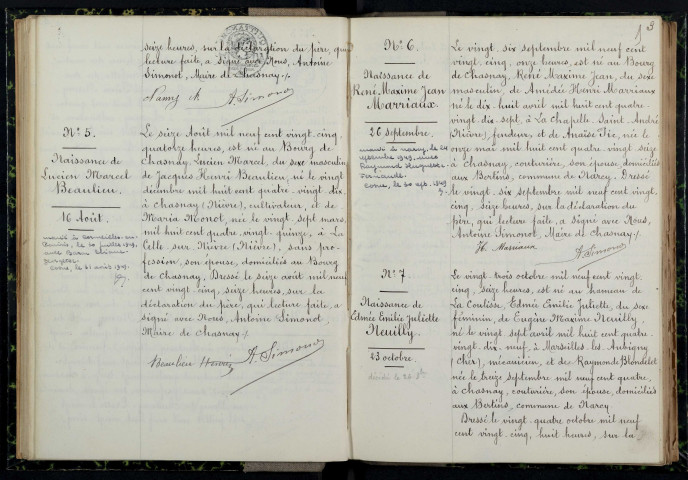 seize heures, sur la déclaration du père, qui
lecture faite, a signé avec Nous, Antoine
Simonot, Maire de Chasnay./.
A. Simonot
N° 5.
Naissance de
Lucien Marcel
Beaulieu.
16 Août.
Le seize Août mil neuf cent vingt-cinq,
quatorze heures, est né au Bourg de
Chasnay, Lucien Marcel, du sexe masculin
de Jacques Henri Beaulieu, né le vingt
décembre mil huit cent quatre-vingt-dix
à Chasnay (Nièvre), cultivateur, et de
Maria Monot, née le vingt sept mars
mil huit cent quatre-vingt-quinze, à La
Celle-sur-Nièvre (Nièvre), sans pro-
fession, son épouse, domiciliés au Bourg
de Chasnay. Dressé le seize août mil neuf
cent vingt-cinq, seize heures, sur la
déclaration du père, qui lecture faite, a
signé avec Nous, Antoine Simonot,
Maire de Chasnay./.
Beaulieu Henri
A. Simonot
3
N° 6.
Naissance de
René Maxime Jean
Marriaux.
26 septembre.
Le vingt-six septembre mil neuf cent
vingt-cinq, onze heures, est né au Bourg
de Chasnay, René Maxime Jean, du sexe
masculin, de Amédée Henri Marriaux
né le dix-huit avril mil huit cent quatre-
vingt-dix-sept, à La Chapelle-Saint-André
(Nièvre), fendeur, et de Anaïse Fie, née le
onze mai mil huit cent quatre-vingt-seize
à Chasnay, couturière, son épouse, domiciliés
aux Bertins, commune de Narcy. Dressé
le vingt-six septembre mil neuf cent vingt-
cinq, seize heures, sur la déclaration du
père, qui lecture faite, a signé avec Nous,
Antoine Simonot, Maire de Chasnay./.
H. Marriaux
A. Simonot
N° 7
Naissance de
Edmée Emilie Juliette
Neuilly.
23 octobre.
Le vingt-trois octobre mil neuf cent vingt-
cinq, seize heures, est née au hameau de
La Coutisse, Edmée Emilie Juliette, du sexe
féminin, de Eugène Maxime Neuilly,
né le vingt sept avril mil huit cent quatre-
vingt-dix-neuf, à Marseilles-les-Aubigny
(Cher), mécanicien, et de Raymonde Blondelet
née le treize septembre mil neuf cent quatre,
à Chasnay, couturière, son épouse, domiciliés
aux Bertins, commune de Narcy
Dressé le vingt-quatre octobre mil neuf
cent vingt-cinq, huit heures, sur la